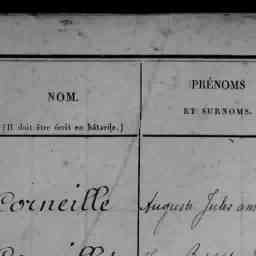 NOM.
(Il doit être écrit en bâtarde.)
PRÉNOMS
ET SURNOMS.
Corneille
Auguste Jules